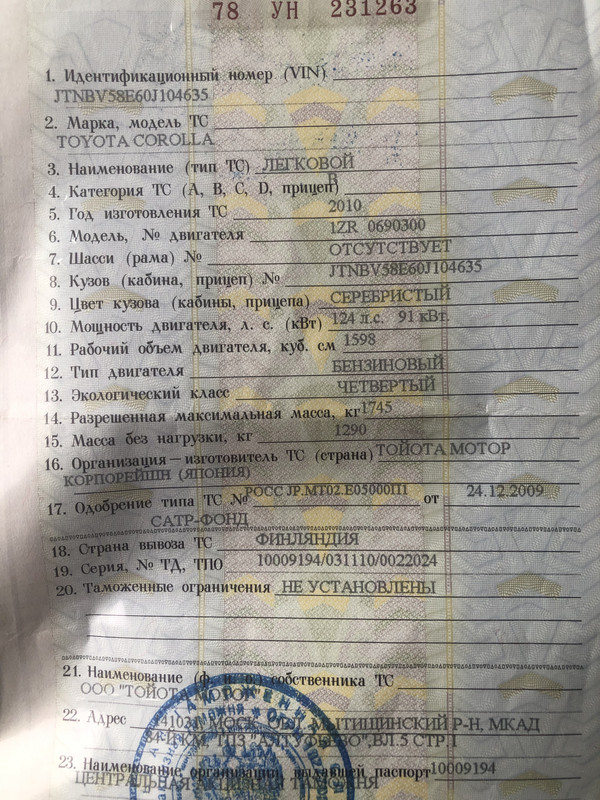 78 УН 231263
1. Идентификационный номер (VIN)
JTNBV58E60J104635
2. Марка, модель ТС
TOYOTA COROLLA
3. Наименование (тип ТС) ЛЕГКОВОЙ
4. Категория ТС (A, B, C, D, прицеп) B
5. Год изготовления ТС 2010
6. Модель, № двигателя 1ZR 0690300
7. Шасси (рама) № ОТСУТСТВУЕТ
8. Кузов (кабина, прицеп) № JTNBV58E60J104635
9. Цвет кузова (кабины, прицепа) СЕРЕБРИСТЫЙ
10. Мощность двигателя, л. с. (кВт) 124 л.с. 91 кВт.
11. Рабочий объем двигателя, куб. см 1598
12. Тип двигателя БЕНЗИНОВЫЙ
13. Экологический класс ЧЕТВЕРТЫЙ
14. Разрешенная максимальная масса, кг 1745
15. Масса без нагрузки, кг 1290
16. Организация – изготовитель ТС (страна) ТОЙОТА МОТОР
КОРПОРЕЙШН (ЯПОНИЯ)
17. Одобрение типа ТС № РОСС JP.MT02.E05000П1 от 24.12.2009
САТР-ФОНД
18. Страна вывоза ТС ФИНЛЯНДИЯ
19. Серия, № ТД, ТПО 10009194/031110/0022024
20. Таможенные ограничения НЕ УСТАНОВЛЕНЫ
21. Наименование (ф. и. о.) собственника ТС
ООО "ТОЙОТА МОТОР"
22. Адрес 141031, МОСК. ОБЛ., МЫТИЩИНСКИЙ Р-Н, МКАД
84-Й КМ, ТПЗ "АЛТУФЬЕВО", ВЛ.5 СТР.1
23. Наименование организации, выдавшей паспорт 10009194
ЦЕНТРАЛЬНАЯ АКЦИЗНАЯ ТАМОЖНЯ